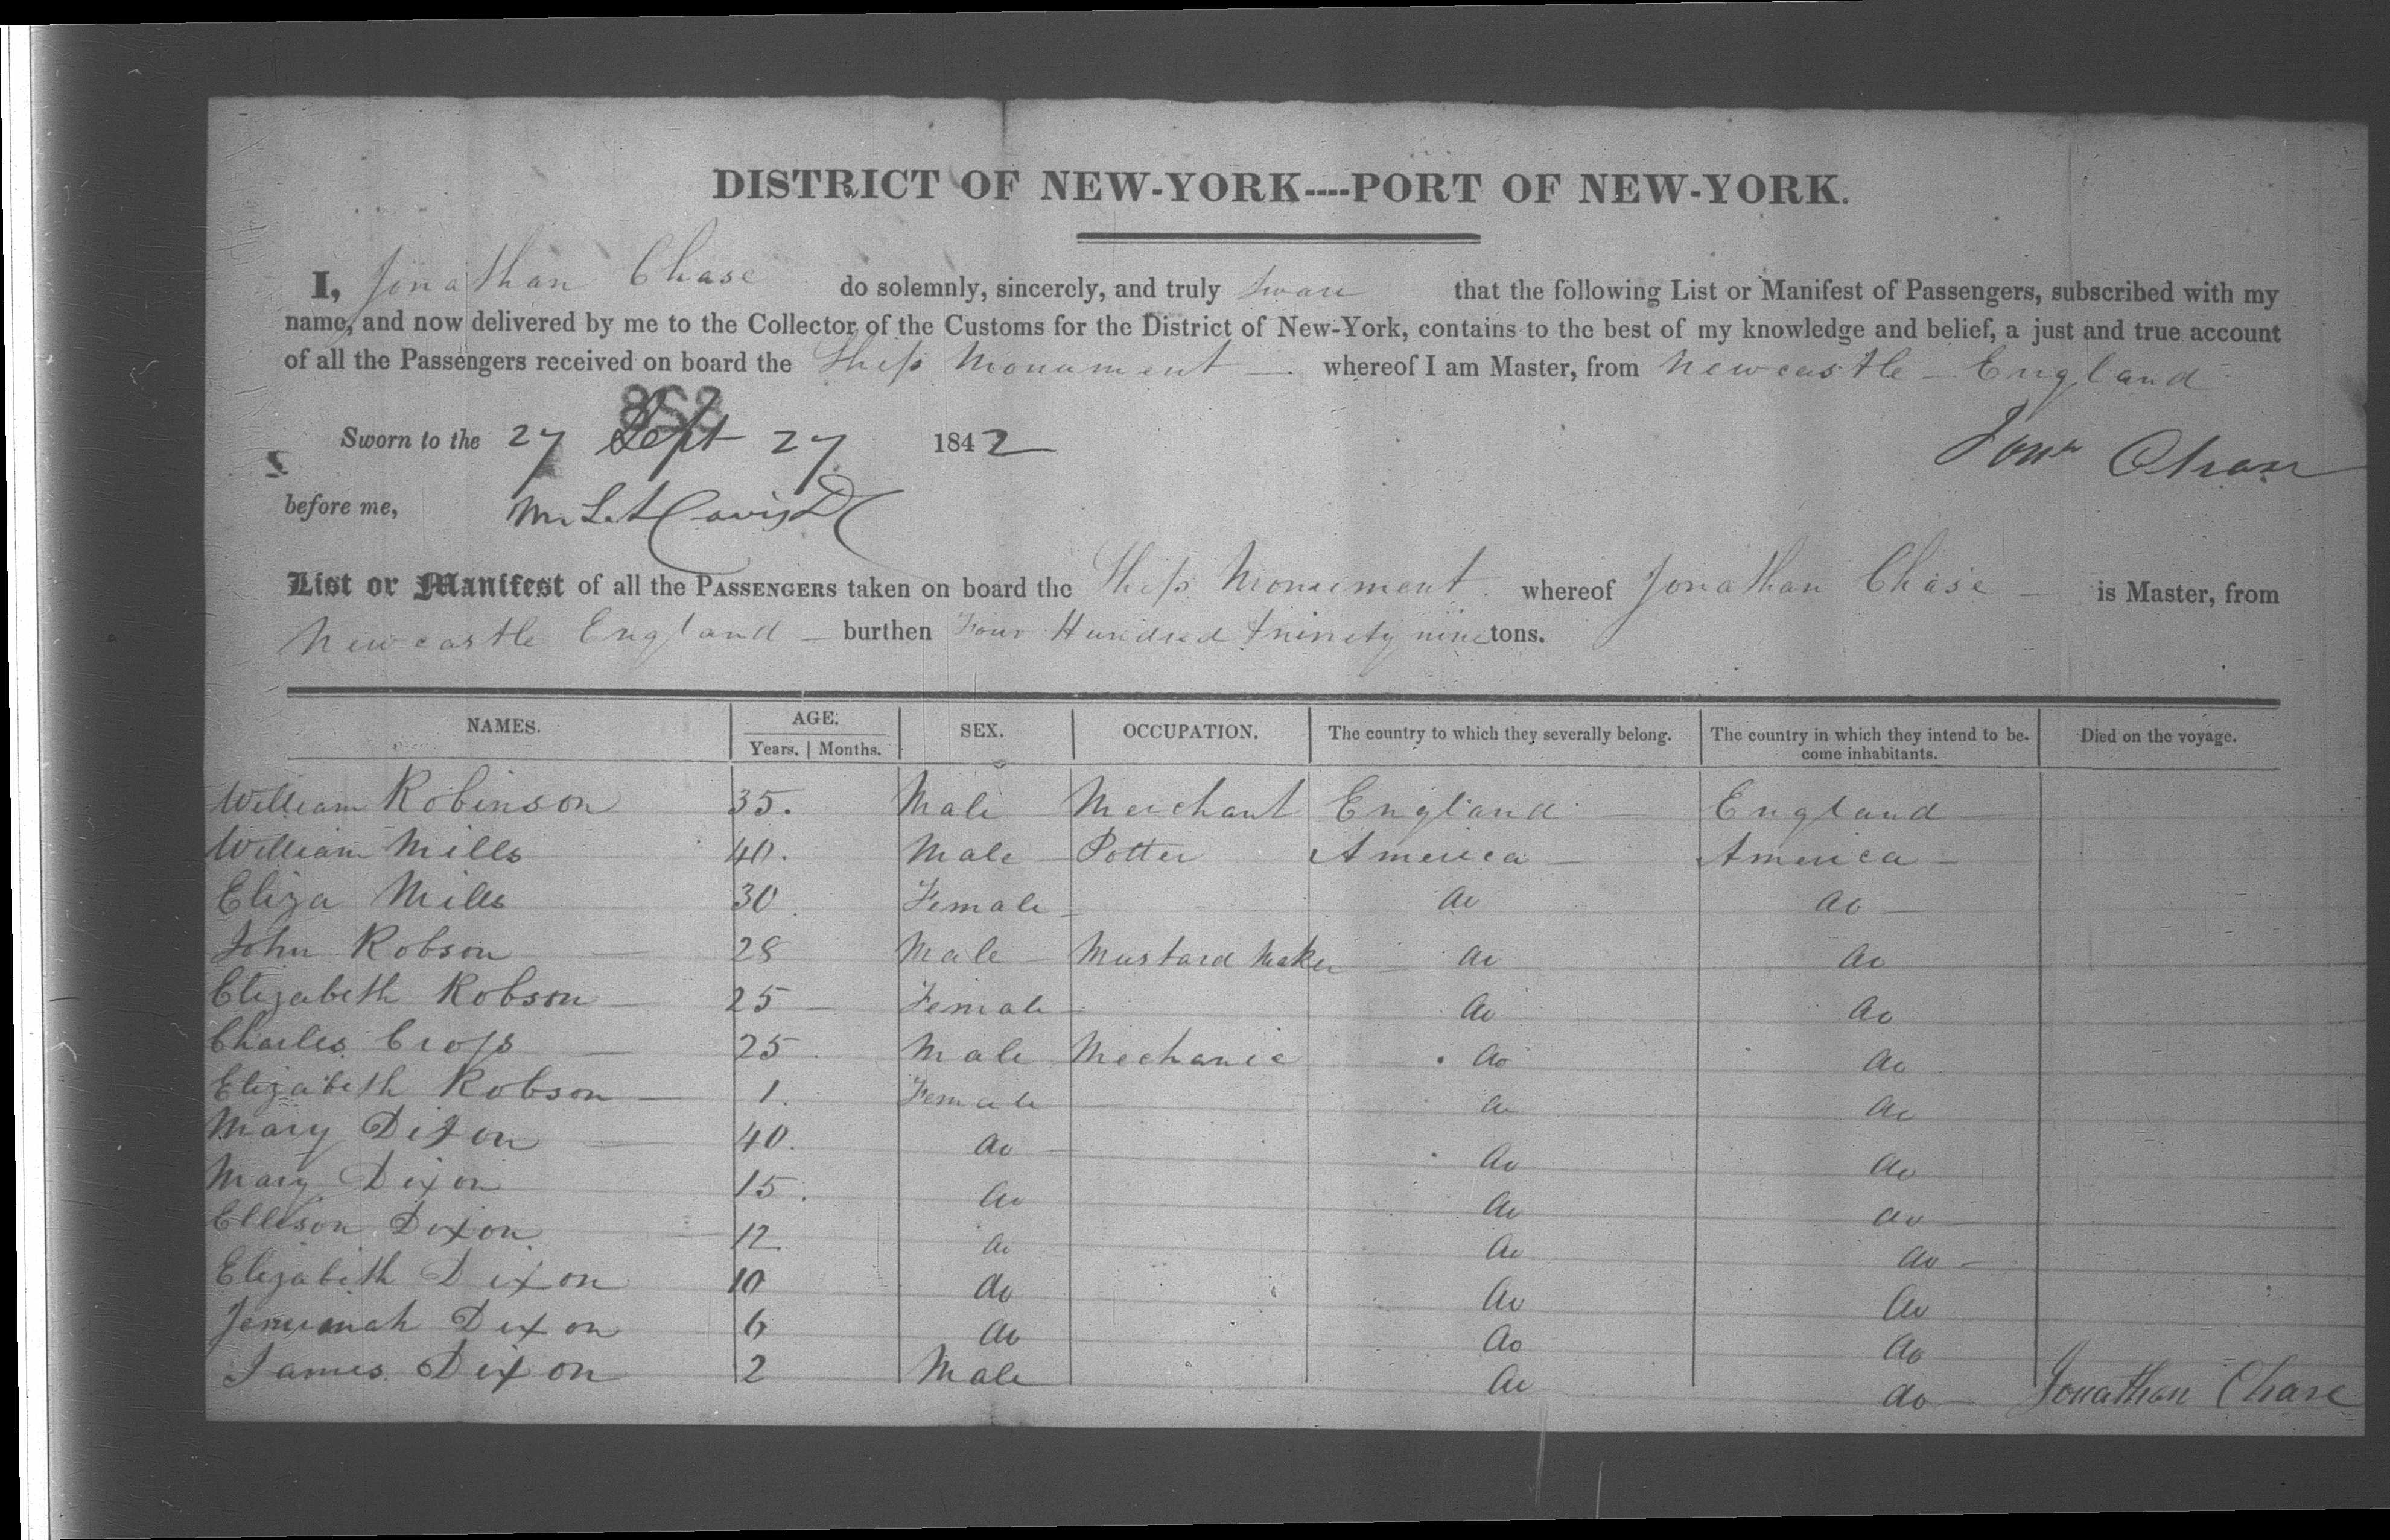 DISTRICT OF NEW-YORK----PORT OF NEW-YORK.
I, Jonathan Chase do solemnly, sincerely, and truly swear that the following List or Manifest of Passengers, subscribed with my
name, and now delivered by me to the Collector of the Customs for the District of New-York, contains to the best of my knowledge and belief, a just and true account
of all the Passengers received on board the Ship Monument whereof I am Master, from Newcastle - England
858
Sworn to the 27 Sept 27 1842
Jonn Chase
before me,
List or Manifest of all the PASSENGERS taken on board the Ship Monument whereof Jonathan Chase is Master, from
Newcastle England burthen Four Hundred & ninety nine tons.
NAMES. AGE: Years. | Months. SEX. OCCUPATION. The country to which they severally belong. The country in which they intend to be-come inhabitants. Died on the voyage.
William Robinson 35. Male Merchant England England
William Mills 40. Male Potter America America
Eliza Mills 30 Female do do
John Robson 28 Male Mustard Maker do do
Elizabeth Robson 25 Female do do
Charles Cross 25 Male Mechanic do do
Elizabeth Robson 1. Female do do
Mary Dixon 40. do do do
Mary Dixon 15. do do do
Ellison Dixon 12 do do do
Elizabeth Dixon 10 do do do
Jemimah Dixon 6 do do do
James Dixon 2 Male do do Jonathan Chase